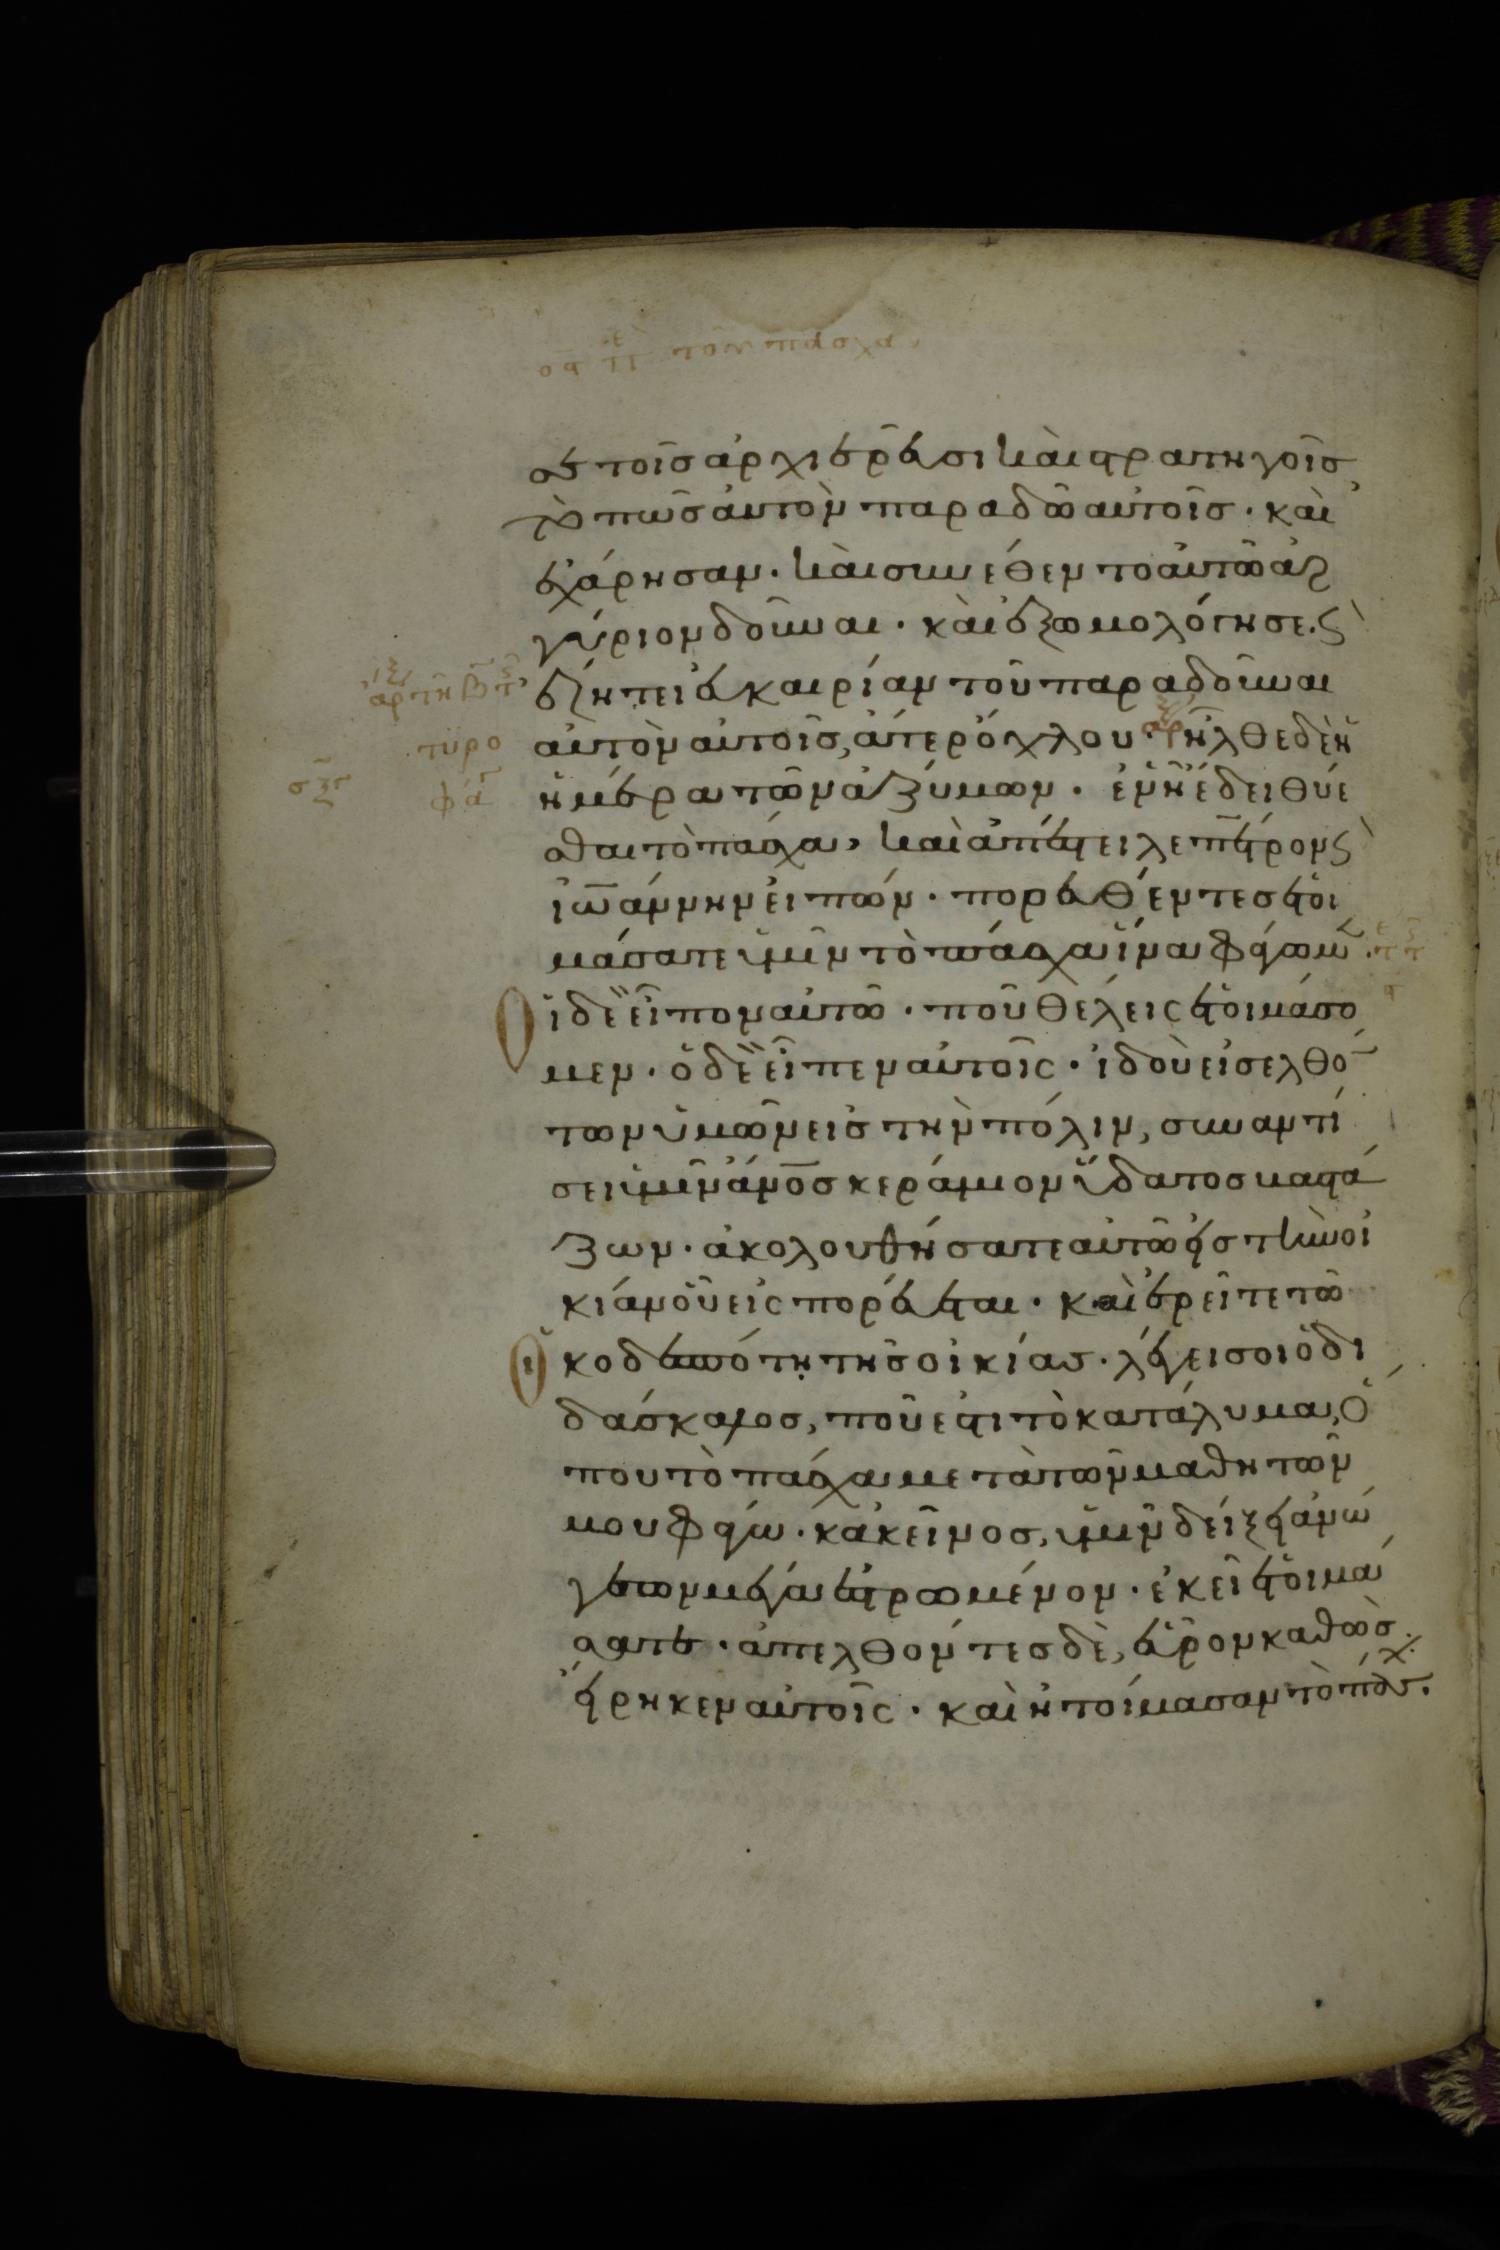 οϛ π τοῦ πάσχα
σε τοῖς ἀρχιερεῦσι καὶ στρατηγοῖς
τὸ πῶς αὐτὸν παραδῶ αὐτοῖς · καὶ
ἐχάρησαν · καὶ συνέθεντο αὐτῶ ἀρ
γύριον δοῦναι · καὶ ἐξωμολόγησε · ϛ̀
ἐζήτει εὐκαιρίαν τοῦ παραδοῦναι
αὐτὸν αὐτοῖς, ἄτερ ὄχλου · ἦλθε δὲ ἡ
τυρο
ἡμέρα τῶν ἀζύμων · ἐν ἧ ἔδει θύε
σθαι τὸ πάσχα, καὶ ἀπέστειλε πέτρον ϛ̀
ἰωάννην εἰπών · πορευθέντες ἑτοι
μάσατε ἡμῖν τὸ πάσχα ἵνα φάγωμ̅
Οἱ δὲ εἶπον αὐτῶ · ποῦ θέλεις ἑτοιμάσο
μεν · ὁ δὲ εἶπεν αὐτοῖς · ἰδοὺ εἰσελθό
των ὑμῶν εἰς τὴν πόλιν, συναντή
σει ὑμῖν ἄν̅ο̅ς κεράμιον ὕδατος βαστά
ζων · ἀκολουθήσατε αὐτῶ εἰς τὴν οἰ
κίαν οὗ εἰσπορεύεται · καὶ ἐρεῖτε τῶ
οἰκοδεσπότη τῆς οἰκίας · λέγει σοι ὁ δι
δάσκαλος, ποῦ ἐστι τὸ κατάλυμα, ὅ
που τὸ πάσχα μετὰ τῶν μαθητῶν
μου φάγω · κἀκεῖνος, ὑμῖν δείξει ἀνώ
γεων μέγα ἐστρωμένον · ἐκεῖ ἑτοιμά
σατε · ἀπελθόντες δὲ, εὗρον καθὼς
εἴρηκεν αὐτοῖς · καὶ ἡτοίμασαν τὸ πάσχ